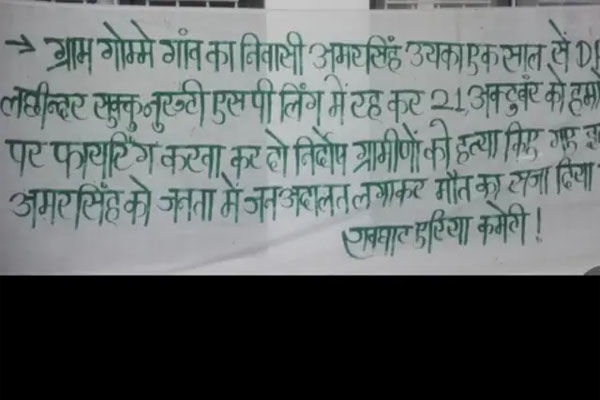 → ग्राम गोम्मे गांव का निवासी अमरसिंह उयका एक साल से
लछीन्दर एसपी लिंग में रह कर 21 अक्टुबर को
पर फायरिंग करवा कर दो निर्दोष ग्रामीणों की हत्या किए गए
अमरसिंह को जनता में जन अदालत लगाकर मौत का सजा दिया
रावघाट एरिया कमेटी !